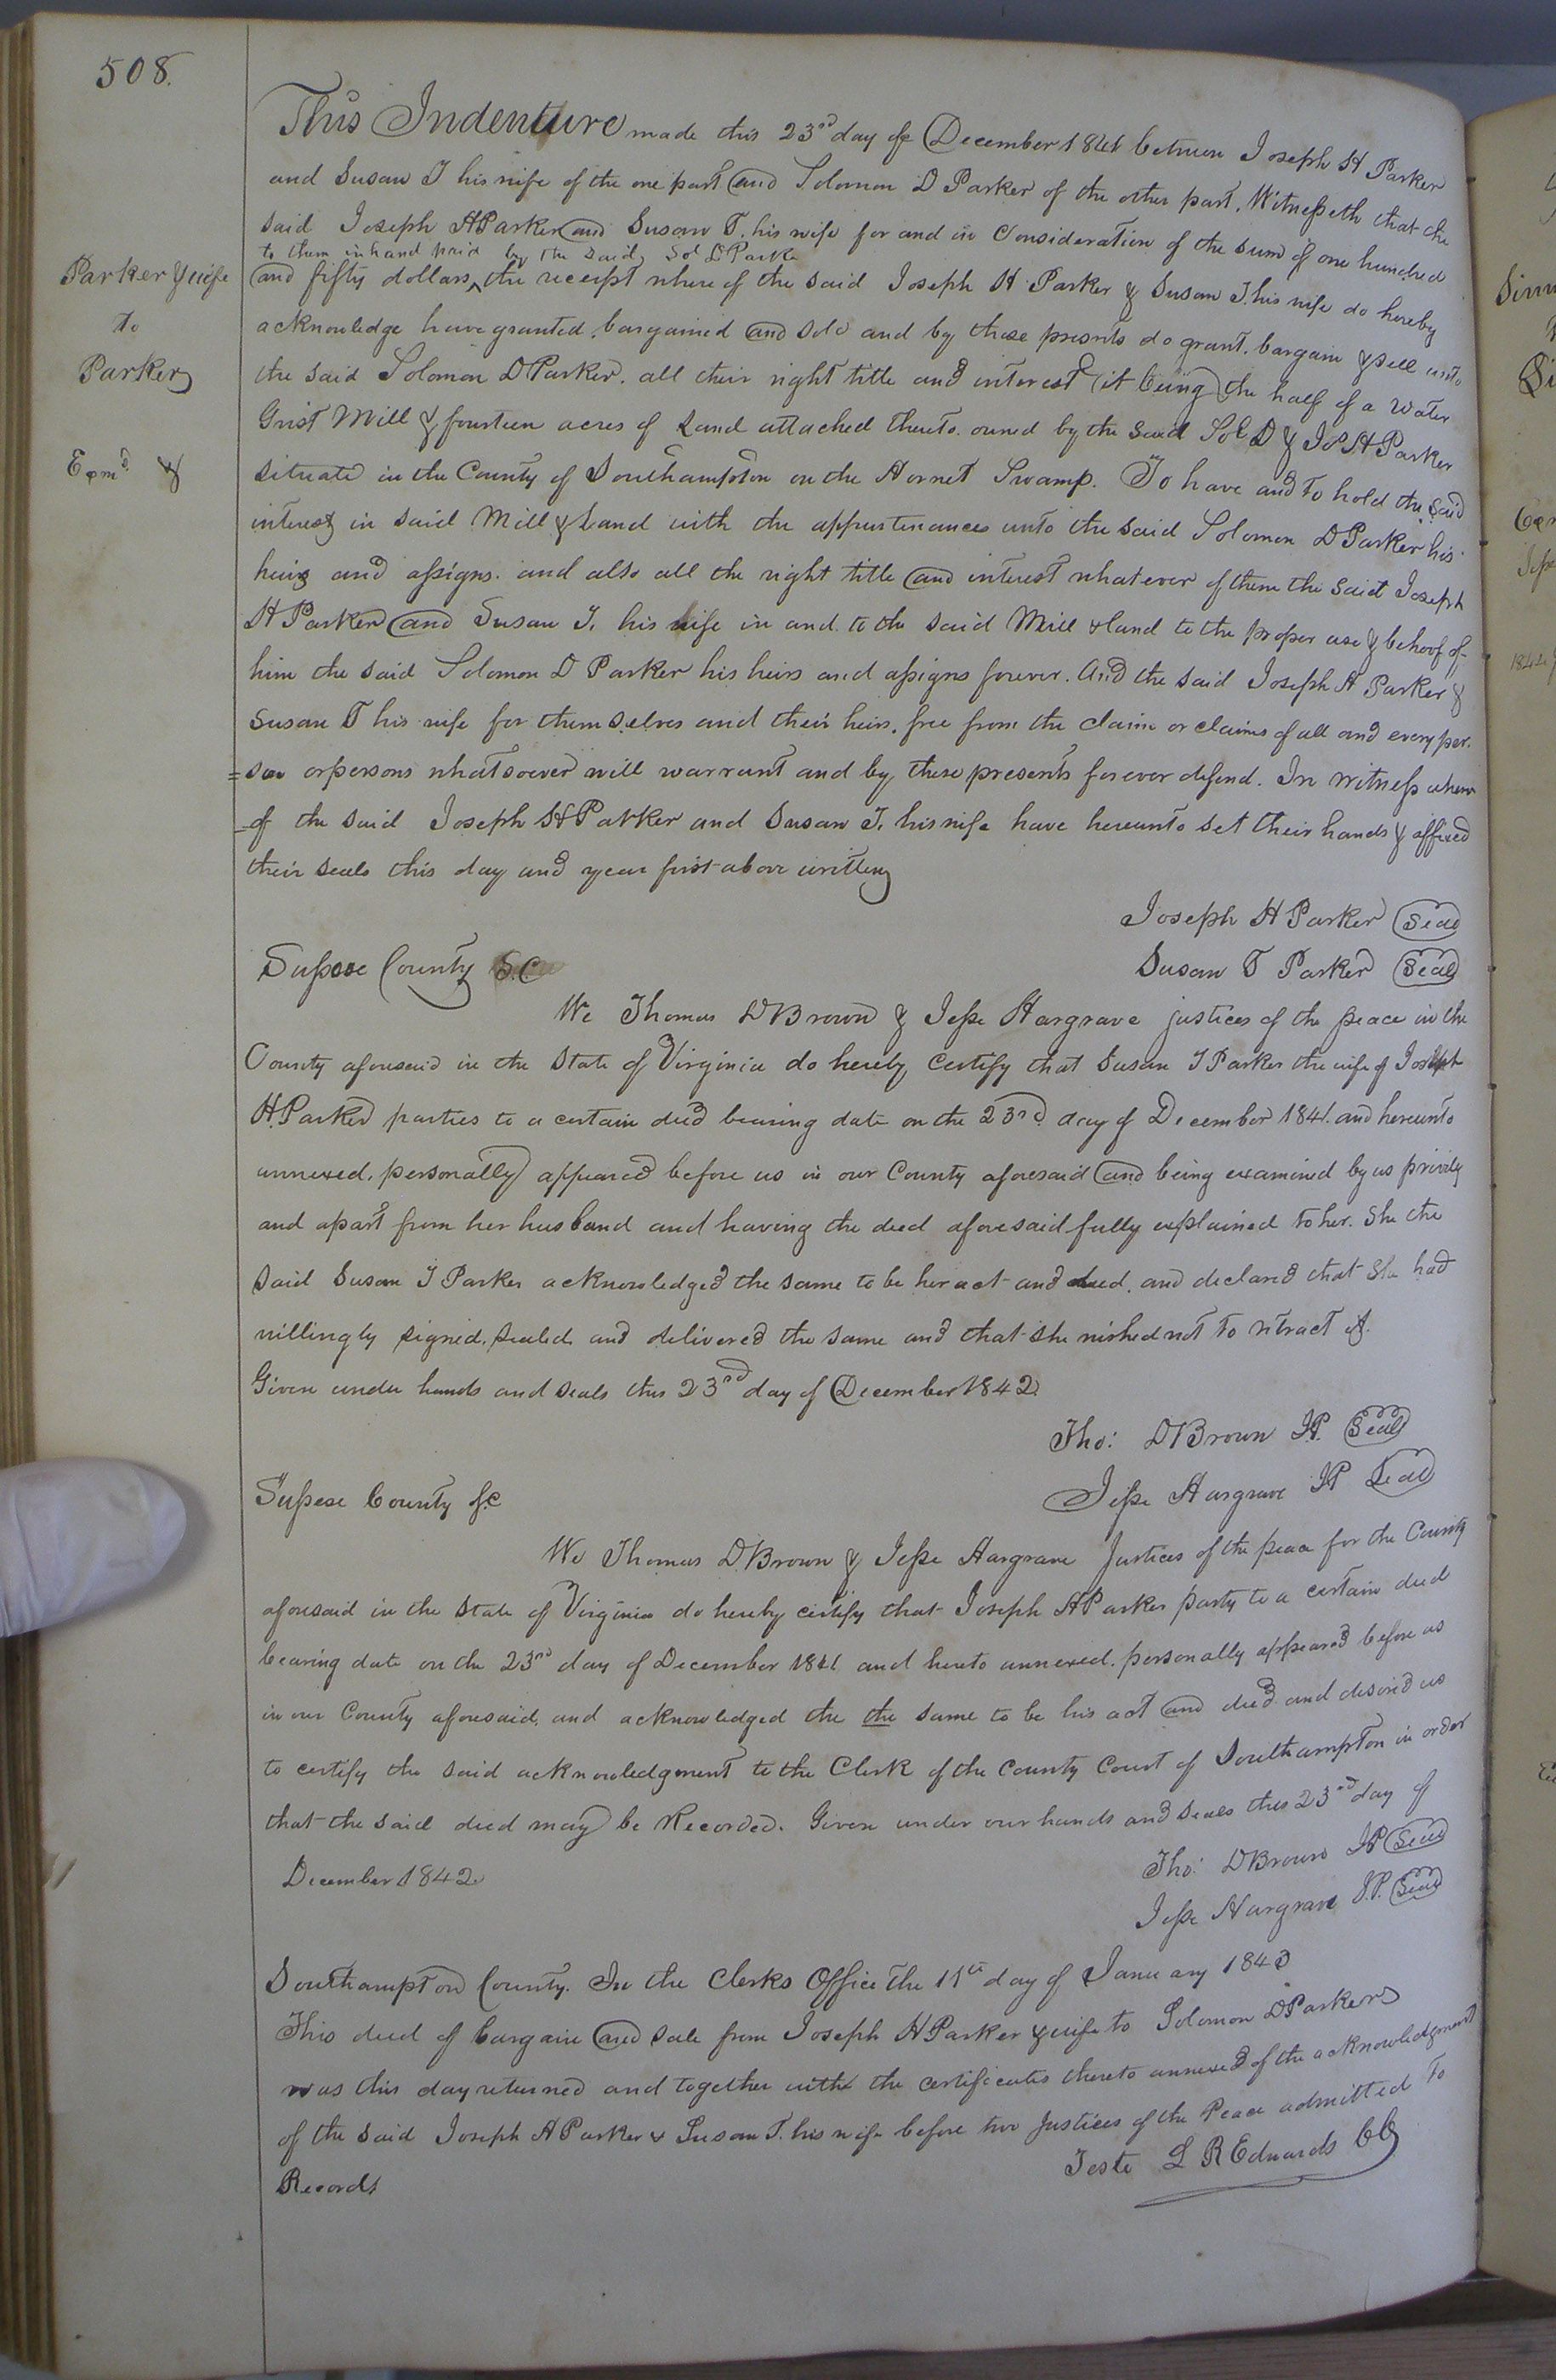 508.
This Indenture made this 23rd day of December 1841 between Joseph H Parker
and Susan T his wife of the one part and Solomon D Parker of the other part. Witnesseth that the
said Joseph H Parker and Susan T. his wife for and in Consideration of the sum of one hundred
to them in hand paid by the said Sol D Parker
and fifty dollars, the receipt where of the said Joseph H Parker & Susan T. his wife do hereby
acknowledge have granted, bargained and sold and by these presents do grant, bargain & sell unto
the said Solomon D Parker. all their right title and interest (it being) the half of a Water
Grist Mill & fourteen acres of Land attached thereto. owned by the said Sol D & Jos H Parker
situate in the County of Southampton on the Hornet Swamp. To have and to hold the said
interest in said Mill & Land with the appurtenances unto the said Solomon D Parker his
heirs and assigns. and also all the right title and interest whatever of them the said Joseph
H Parker and Susan T. his wife in and to the said Mill & land to the proper use & behoof of
him the said Solomon D Parker his heirs and assigns forever. And the said Joseph H Parker &
Susan T his wife for themselves and their heirs, free from the claim or claims of all and every per-
=son or persons whatsoever will warrant and by these presents forever defend. In Witness where
-of the said Joseph H Parker and Susan T. his wife have hereunto set their hands & affixed
their seals this day and year first above written
Joseph H Parker Seal
Susan T Parker Seal
Parker & wife
to
Parker
Exmd. &
Sussex County S.C
We Thomas D Brown & Jesse Hargrave justices of the peace in the
County aforesaid in the State of Virginia do hereby Certify that Susan T Parker the wife of Joseph
H. Parker parties to a certain deed bearing date on the 23rd day of December 1841. and hereunto
annexed, personally appeared before us in our County aforesaid and being examined by us privily
and apart from her husband and having the deed aforesaid fully explained to her. She the
said Susan T Parker acknowledged the same to be her act and deed, and declared that she had
willingly signed, sealed and delivered the same and that she wished not to retract it.
Given under hands and seals this 23rd day of December 1842
Tho: D Brown JP. Seal
Jesse Hargrave JP Seal
Sussex County sc
We Thomas D. Brown & Jesse Hargrave Justices of the peace for the County
aforesaid in the State of Virginia do hereby certify that Joseph H Parker party to a certain deed
bearing date on the 23rd day of December 1841 and hereto annexed. personally appeared before us
in our County aforesaid, and acknowledged the the same to be his act and deed and desired us
to certify the said acknowledgment to the Clerk of the County Court of Southampton in order
that the said deed may be Recorded. Given under our hands and seals this 23rd day of
December 1842.
Tho: D Brown JP Seal
Jesse Hargrave J.P. Seal
Southampton County. In the Clerks Office the 11th day of January 1843
This deed of bargain and sale from Joseph H Parker & wife to Solomon D Parker
was this day returned and together with the certificates thereto annexed of the acknowledgment
of the said Joseph H Parker & Susan T. his wife before two Justices of the Peace admitted to
Record.
Teste L R Edwards CC